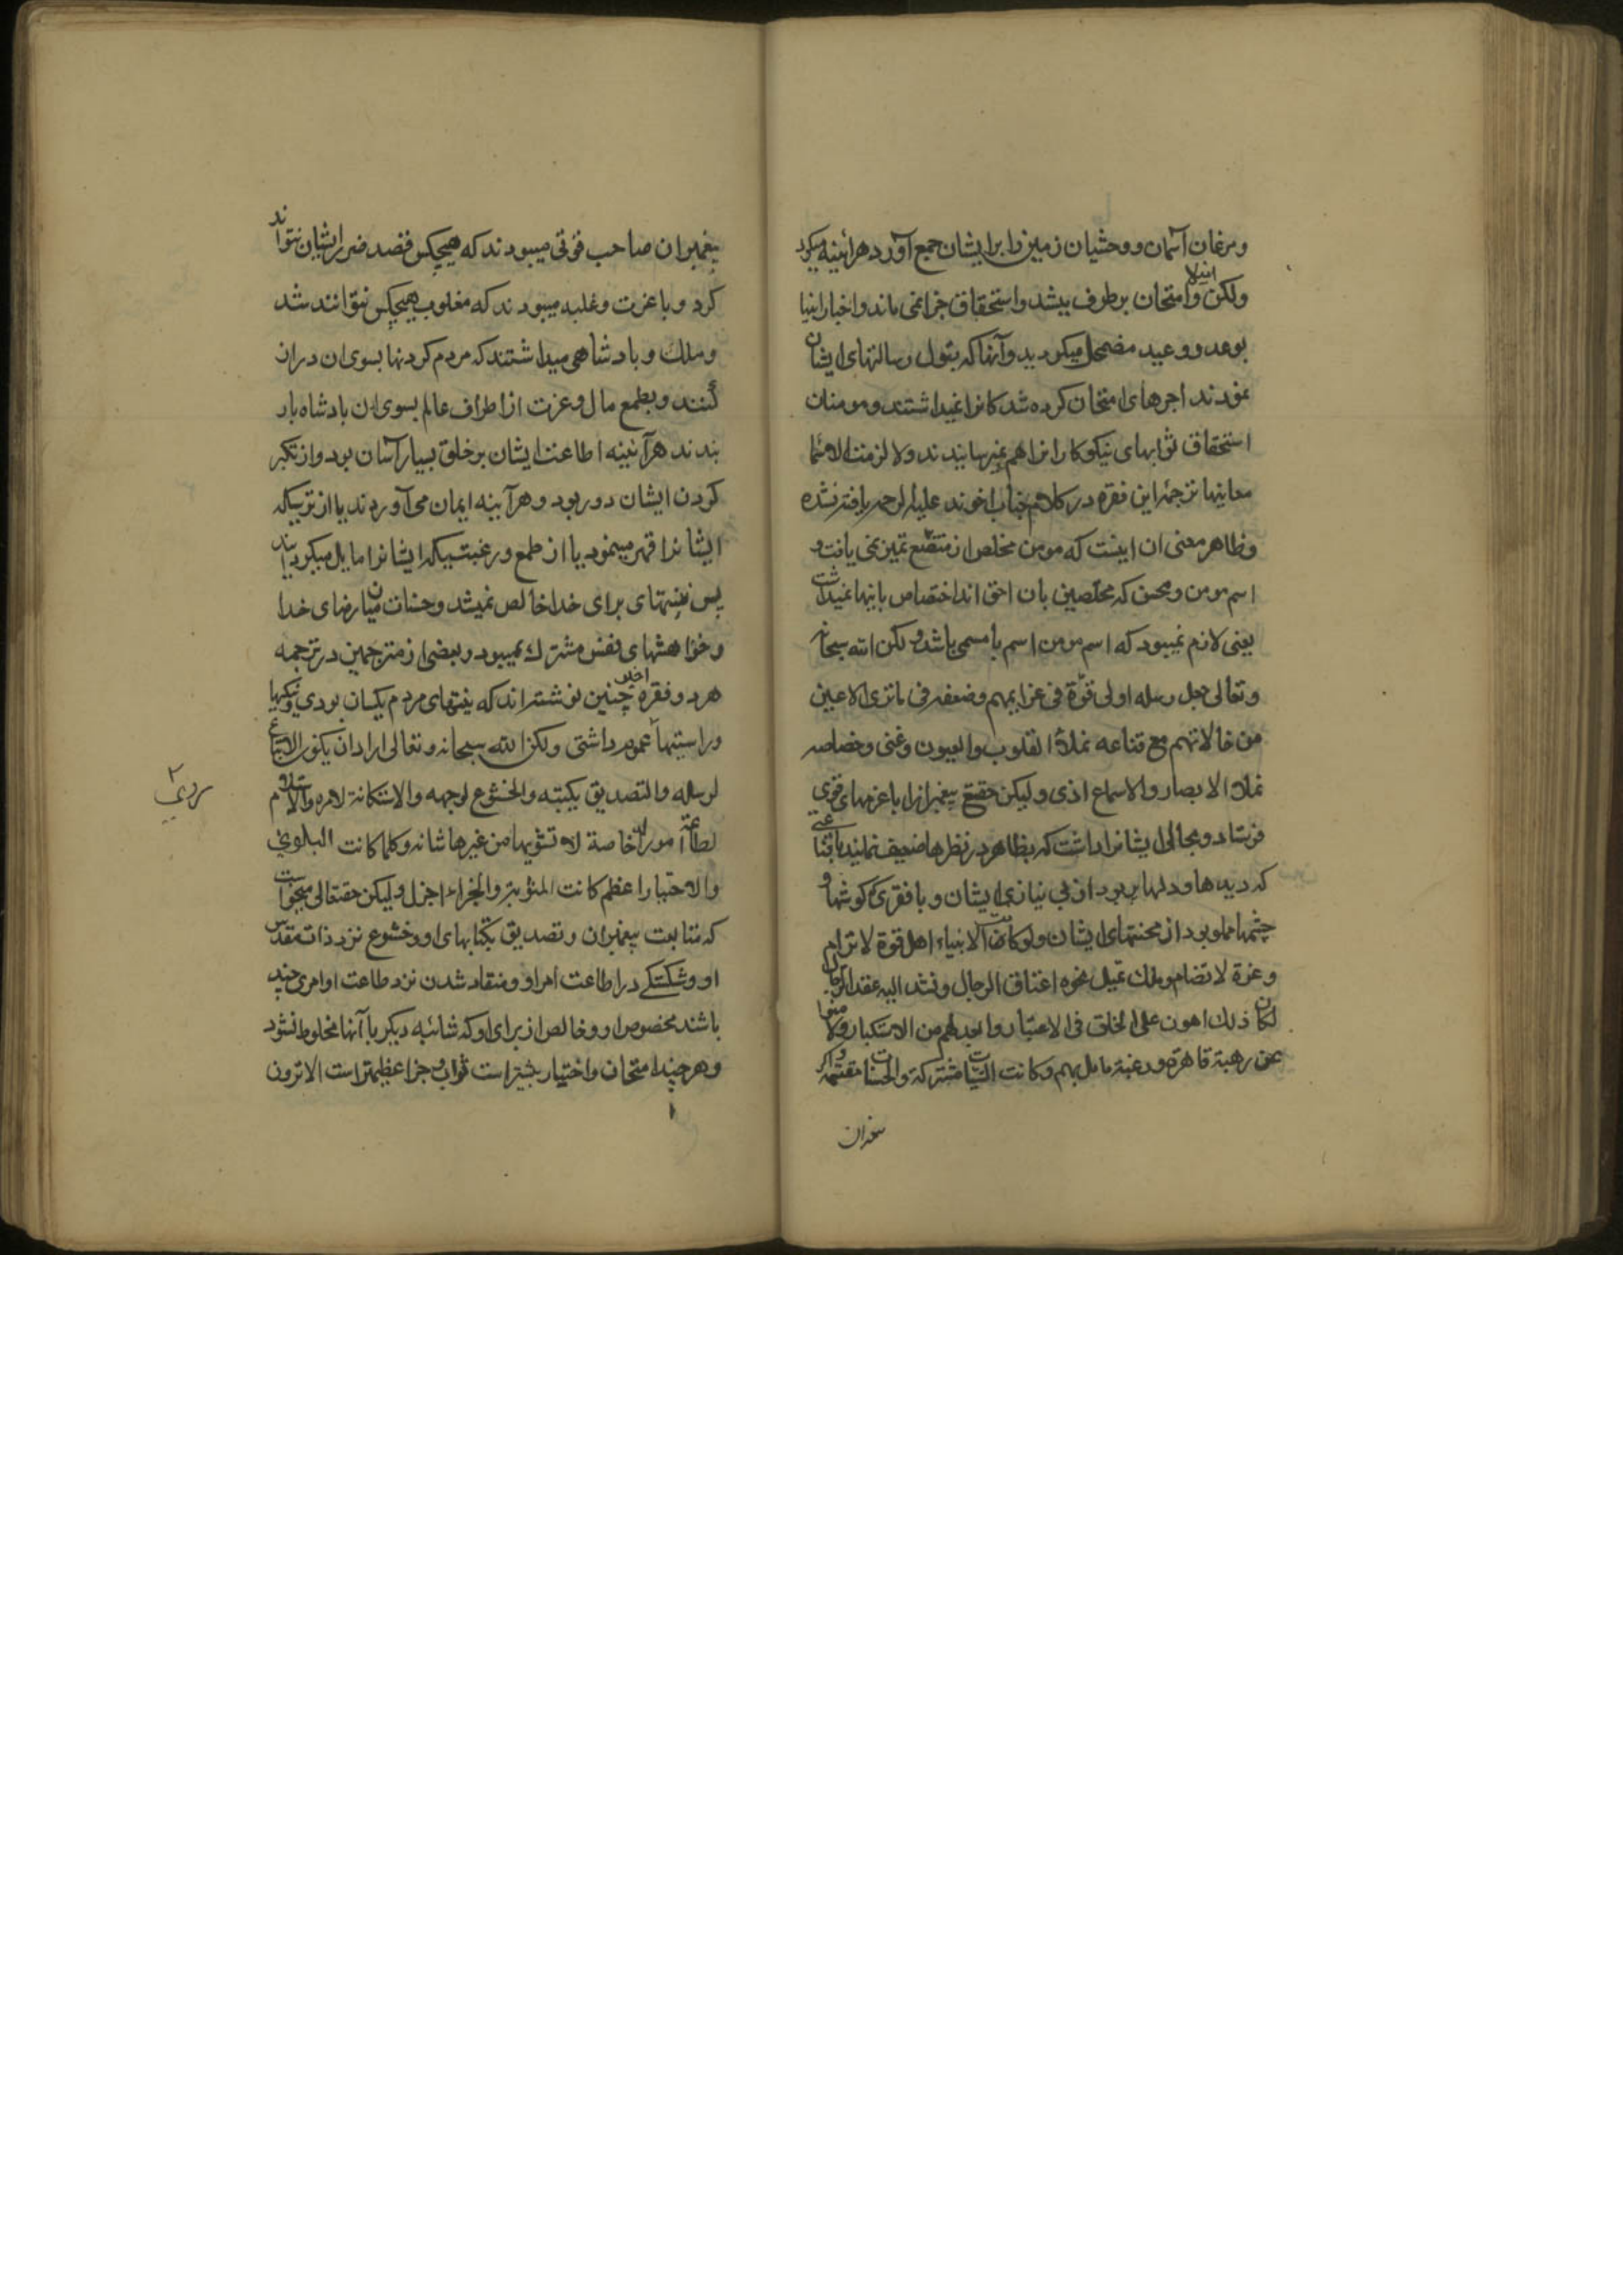 ومرغان آسمان ووحشیان زمین را برایشان جمع آورد هرآئینه میکرد
ولکن ابتلا وامتحان برطرف میشد واستحقاق جزا نمی ماند واخبار انبیا
بوعد ووعید مضمحل میکردید وآنها که قبول رسالتهای ایشان
نمودند اجرهای امتحان کرده شدکانرا نمیداشتند ومومنان
استحقاق ثوابهای نیکوکارانرا هم نمیرسانیدند ولا لزمت الاسماء
معانیها ترجمه این فقره در کلام جناب اخوند علیه الرحمه یافته نشده
وظاهر معنی ان اینست که مومن مخلص از متصنع تمیز نمی یافت و
اسم مومن ومحسن که مخلصین بان احق اند اختصاص باینها نمیداشت
یعنی لازم نمیبود که اسم مومن اسم با مسمی باشد ولکن الله سبحانه
وتعالی جعل رسله اولی قوّة فی عزایمهم وضعفه فی ما تری الاعین
من حالاتهم مع قناعه تملأ القلوب والعیون وغنی وخصاصه
تملأ الابصار والاسماع اذی ولیکن حقتع پیغمبرانرا باعزمهای قوی
فرستاد وبحالی ایشانرا داشت که بظاهر در نظرها ضعیف نمایند باقناعتی
که دیده ها ودلها پر بود از بی نیازی ایشان وبا فقری که کوشها و
چشمها مملو بود از محنتهای ایشان ولو کانت الانبیاء اهل قوة لا ترام
وعزة لا تضام وملك تمیل نحوه اعناق الرجال وتشد الیه عقد الرحال
لکان ذلك اهون علی الخلق فی الاعتبار وابعد لهم من الاستکبار ولامنوا
عن رهبة قاهرة ورغبة مایل بهم وکانت السیات مشترکة والحسنات مقتسمه واکر
پیغمبران صاحب قوتی میبودند که هیچکس قصد ضرر ایشان نتواند
کرد وباعزت وغلبه میبودند که مغلوب هیچکس نتوانند شد
وملك وبادشاهی میداشتند که مردم کردنها بسوی ان دراز
کنند وبطمع مال وعزت از اطراف عالم بسوی ان بادشاه بار
بندند هرآینه اطاعت ایشان برخلق بسیار آسان بود واز تکبر
کردن ایشان دور بود وهرآینه ایمان می آوردند یا از ترسیکه
ایشانرا قهر مینمود یا از طمع ورغبتیکه ایشانرا مایل میکردانید
پس نیتهای برای خدا خالص نمیشد وحسنات میان رضای خدا
وخواهشهای نفس مشترك میبود وبعضی از مترجمین در ترجمه
هردو فقره اخیر چنین نوشته اند که نیتهای مردم یکسان بودی ونیکیها
وراستیها عموم داشتی ولکن الله سبحانه وتعالی اراد ان یکون الاتباع
لرسله والتصدیق بکتبه والخشوع لوجهه والاستکانة لامره والاستسلام
لطاعته امورا له خاصة لا تشوبها من غیرها شائبه وکلما کانت البلوی
والاختبار اعظم کانت المثوبة والجزاء اجزل ولیکن حقتعالی میخواست
که متابعت پیغمبران وتصدیق بکتابهای او وخشوع نزد ذات مقدس
او وشکستکی در اطاعت امر او ومنقاد شدن نزد طاعت او امری چند
باشند مخصوص او وخالص از برای او که شائبه دیکر با آنها مخلوط نشود
وهرچند امتحان واختیار بیشتر است ثواب وجزا عظیمتر است الا ترون